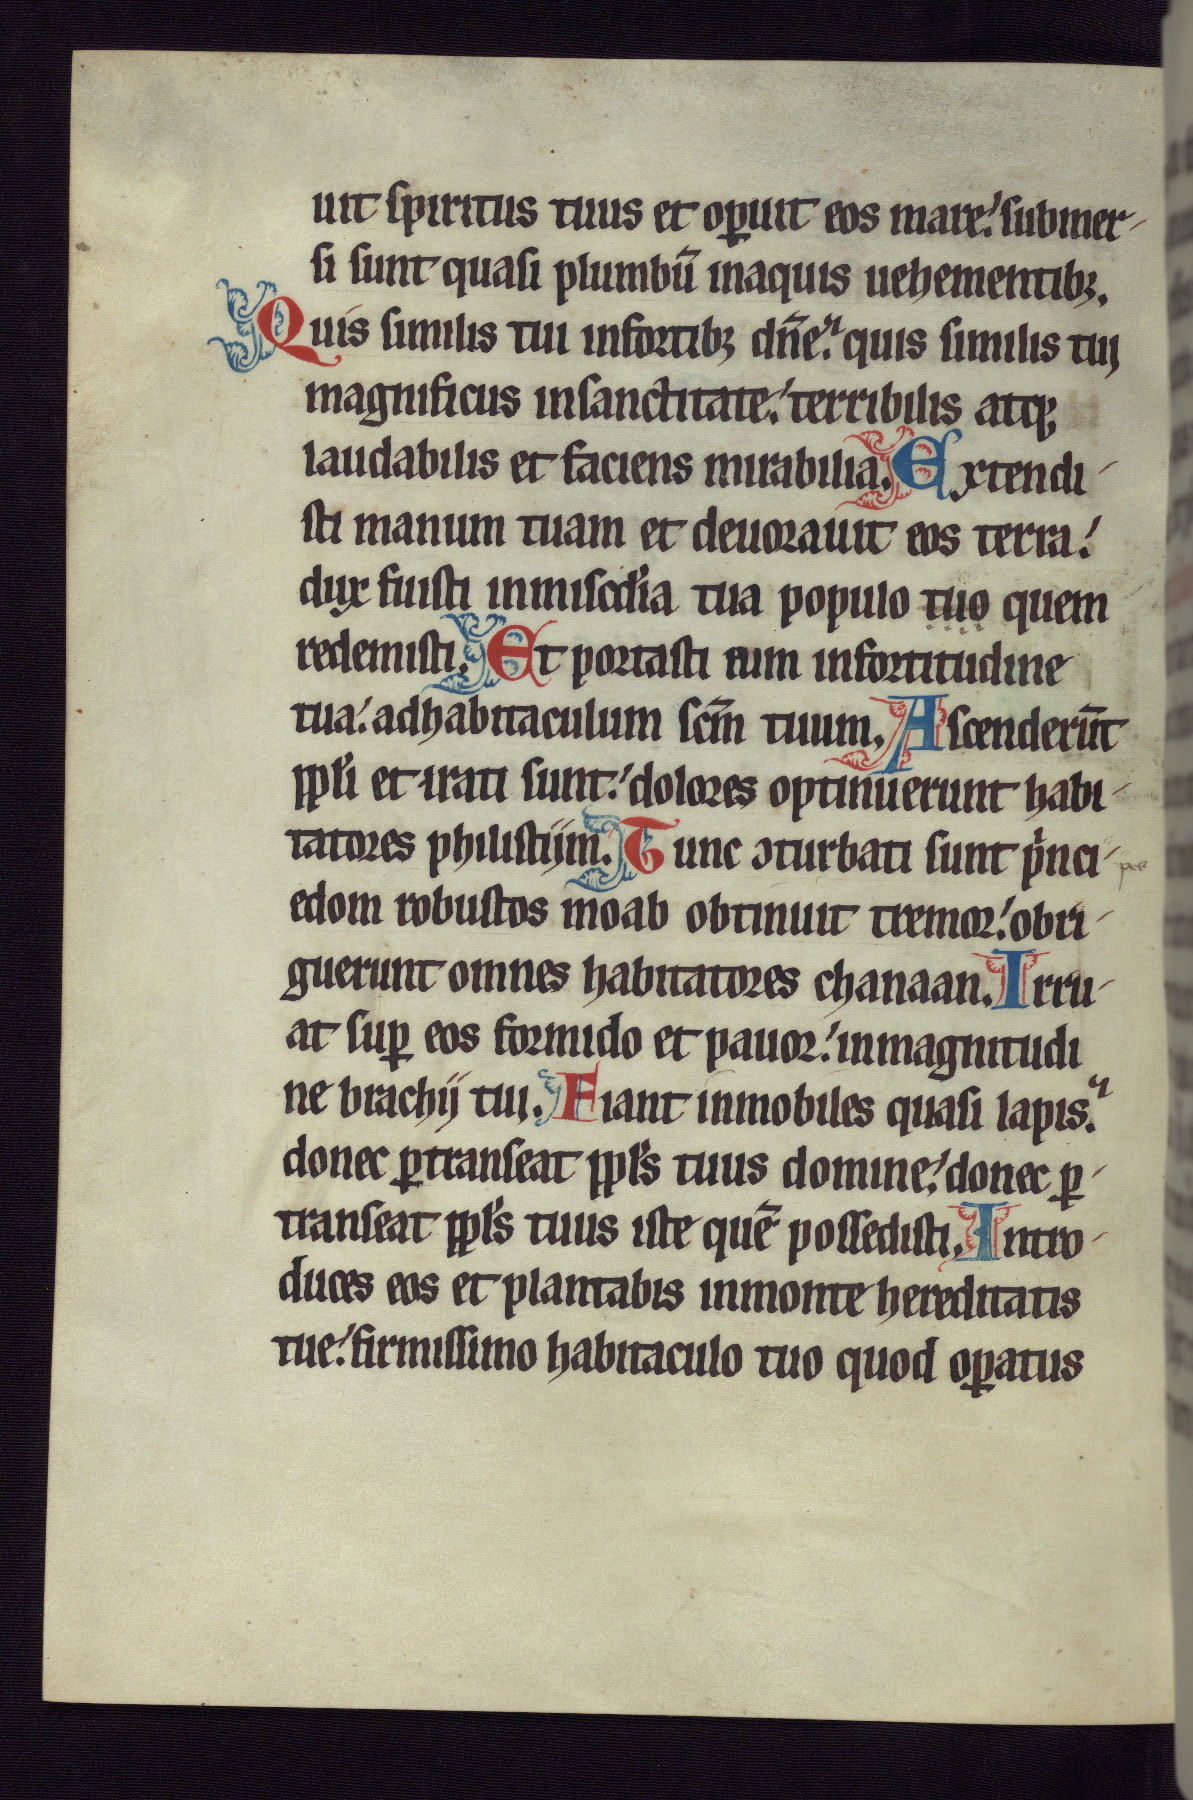 uit spiritus tuus et oꝑuit eos mare. submer-
si sunt quasi plumbū inaquis uehementibꝫ.
Quis similis tui infortibꝫ dn̄e. quis similis tui
magnificus insanctitate. terribilis atqꝫ
laudabilis et faciens mirabilia. Extendi-
sti manum tuam et deuorauit eos terra.
dux fuisti inmiscd̓ia tua populo tuo quem
redemisti. Et portasti eum infortitudine
tua. adhabitaculum scm̄ tuum. Ascenderūt
ppl̓i et irati sunt. dolores optinuerunt habi-
tatores philistijm. Tunc ꝯturbati sunt pͥnci- pes
edom robustos moab obtinuit tremor. obri-
guerunt omnes habitatores chanaan. Irru-
at suꝑ eos formido et pauor. inmagnitudi
ne brachij tui. Fiant inmobiles quasi lapis.
donec ꝑtranseat ppl̓s tuus domine. donec ꝑ-
transeat ppl̓s tuus iste quē possedisti. Intro-
duces eos et plantabis inmonte hereditatis
tue. firmissimo habitaculo tuo quod oꝑatus